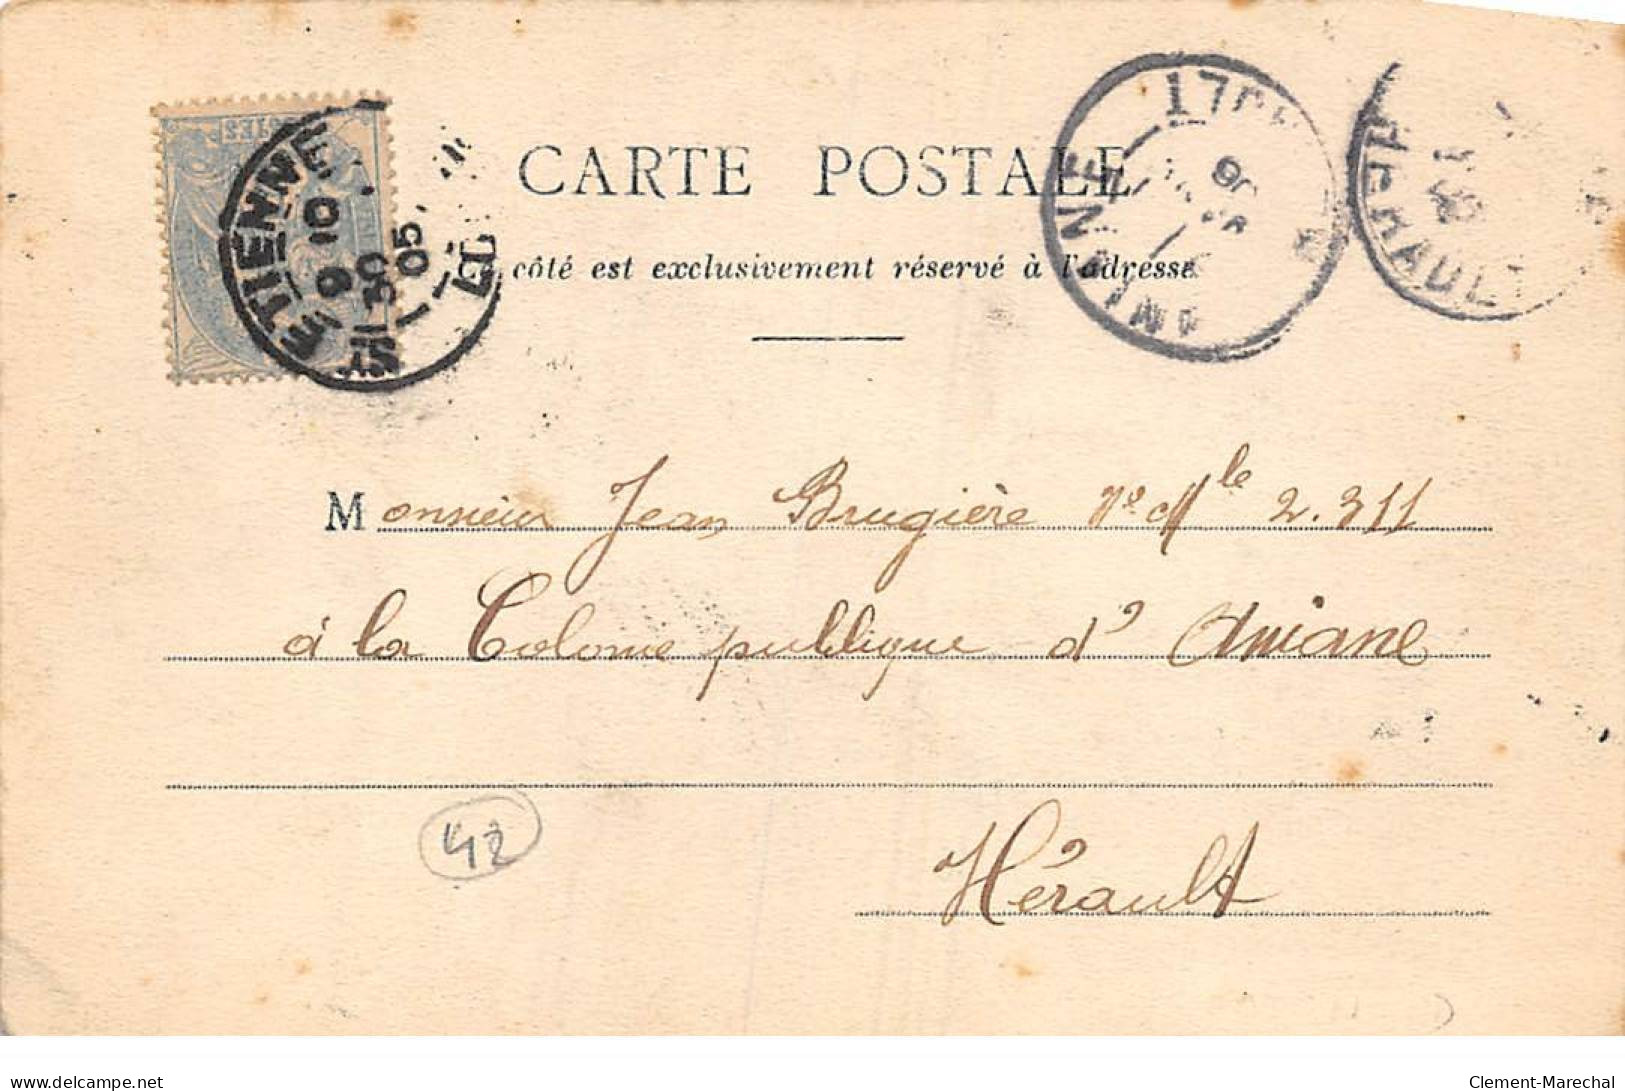 POSTES
ST ETIENNE
9 10
30
05
LOIRE
CARTE POSTALE
Ce côté est exclusivement réservé à l'adresse
ANIANE
HÉRAULT
Monsieur Jean Brugière No Mle 2.311
à la Colonie publique d'Aniane
Hérault
42
www.delcampe.net
Clement-Marechal